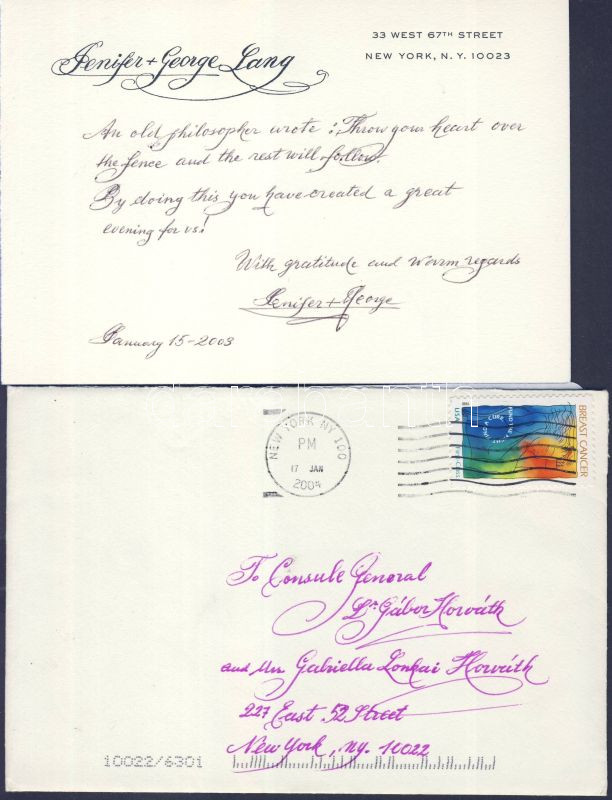 Jenifer + George Lang
33 WEST 67TH STREET
NEW YORK, N.Y. 10023
An old philosopher wrote: Throw your heart over
the fence and the rest will follow.
By doing this you have created a great
evening for us!
With gratitude and warm regards
Jenifer + George
January 15-2003
NEW YORK NY 100
PM
17 JAN
2004
USA
First-Class
FUND THE FIGHT. FIND A CURE.
BREAST CANCER
To Consule General
Gábor Horváth
and Mrs Gabriella Lonkai Horváth
227 East 52 Street
New York, ny. 10022
10022/6301